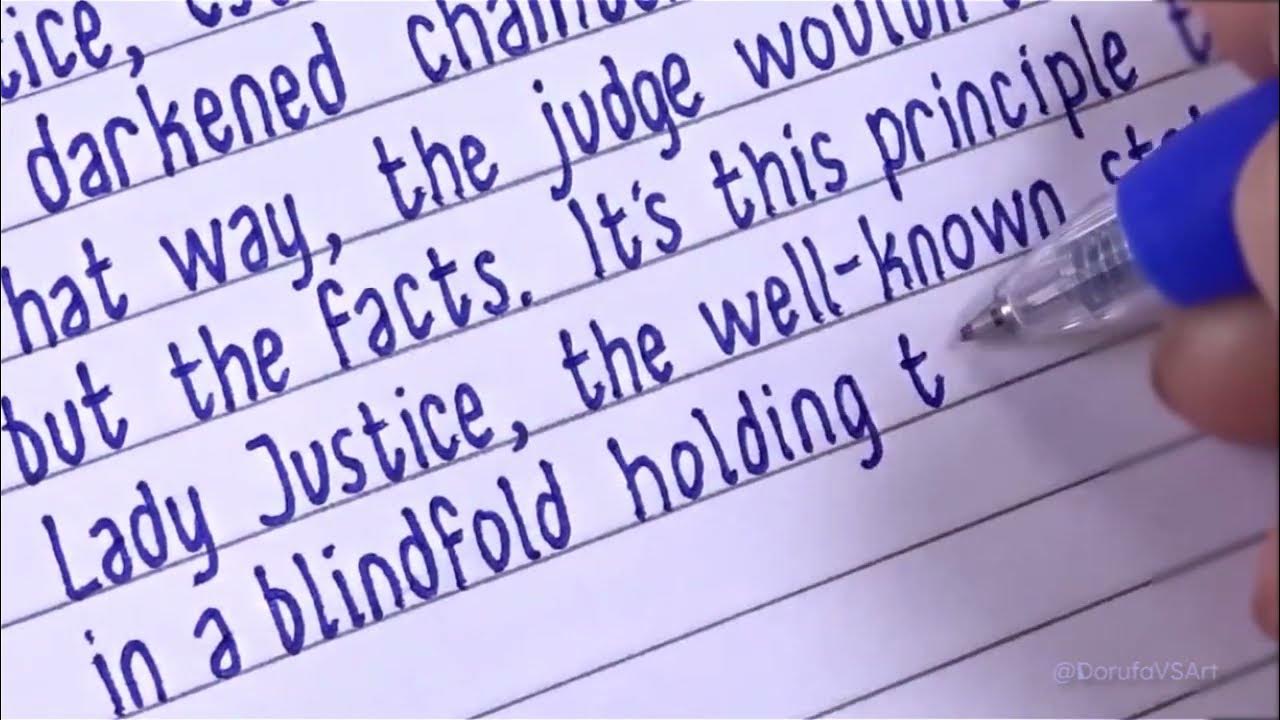 darkened
hat way, the judge
but the facts. It's this principle t
Lady Justice, the well-known
in a blindfold holding t
@DorufaVSArt